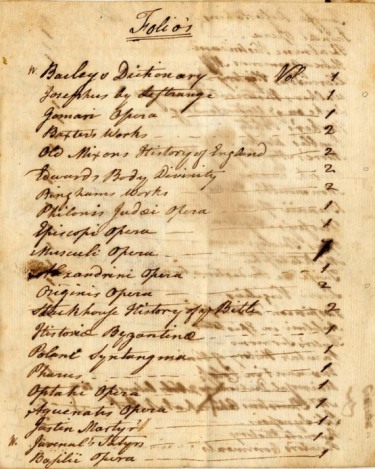 Folio's
W. Bailey's Dictionary Vol. 1
Josephus by Lestrange 1
Gomari Opera 1
Baxter's Works 2
Old Mixons History of England 2
Edwards Body Divinity 2
Binghams Works 2
Philonis Judæi Opera 1
Episcopi Opera 1
Musculi Opera 1
Alexandrini Opera 1
Originis Opera 2
Stackhouse History of ye Bible 2
Historiæ Byzantinæ 1
Polani Syntangma 1
Opera 1
Aquenatis Opera 1
Justin Martyr 1
W. Juvenal's Satyrs 1
Basilii Opera 1